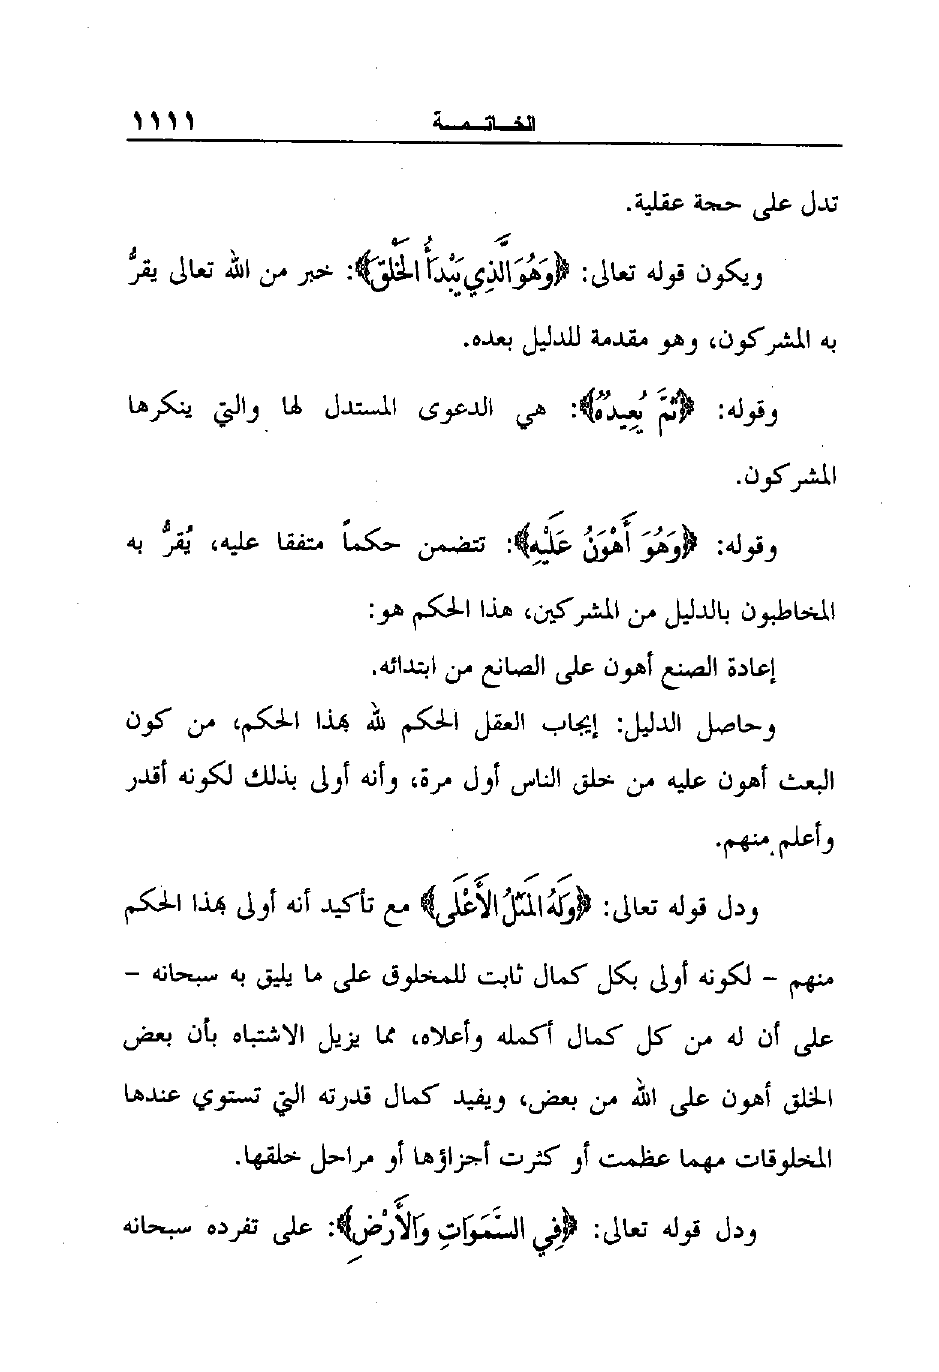 ١١١١ الخاتمة
تدل على حجة عقلية.
ويكون قوله تعالى: ﴿وَهُوَ الَّذِي يَبْدَأُ الْخَلْقَ﴾: خبر من الله تعالى يقرُّ
به المشركون، وهو مقدمة للدليل بعده.
وقوله: ﴿ثُمَّ يُعِيدُهُ﴾: هي الدعوى المستدل لها والتي ينكرها
المشركون.
وقوله: ﴿وَهُوَ أَهْوَنُ عَلَيْهِ﴾: تتضمن حكماً متفقا عليه، يُقرُّ به
المخاطبون بالدليل من المشركين، هذا الحكم هو:
إعادة الصنع أهون على الصانع من ابتدائه.
وحاصل الدليل: إيجاب العقل الحكم لله بهذا الحكم، من كون
البعث أهون عليه من خلق الناس أول مرة، وأنه أولى بذلك لكونه أقدر
وأعلم منهم.
ودل قوله تعالى: ﴿وَلَهُ الْمَثَلُ الأَعْلَى﴾ مع تأكيد أنه أولى بهذا الحكم
منهم - لكونه أولى بكل كمال ثابت للمخلوق على ما يليق به سبحانه -
على أن له من كل كمال أكمله وأعلاه، مما يزيل الاشتباه بأن بعض
الخلق أهون على الله من بعض، ويفيد كمال قدرته التي تستوي عندها
المخلوقات مهما عظمت أو كثرت أجزاؤها أو مراحل خلقها.
ودل قوله تعالى: ﴿فِي السَّمَوَاتِ وَالأَرْضِ﴾: على تفرده سبحانه